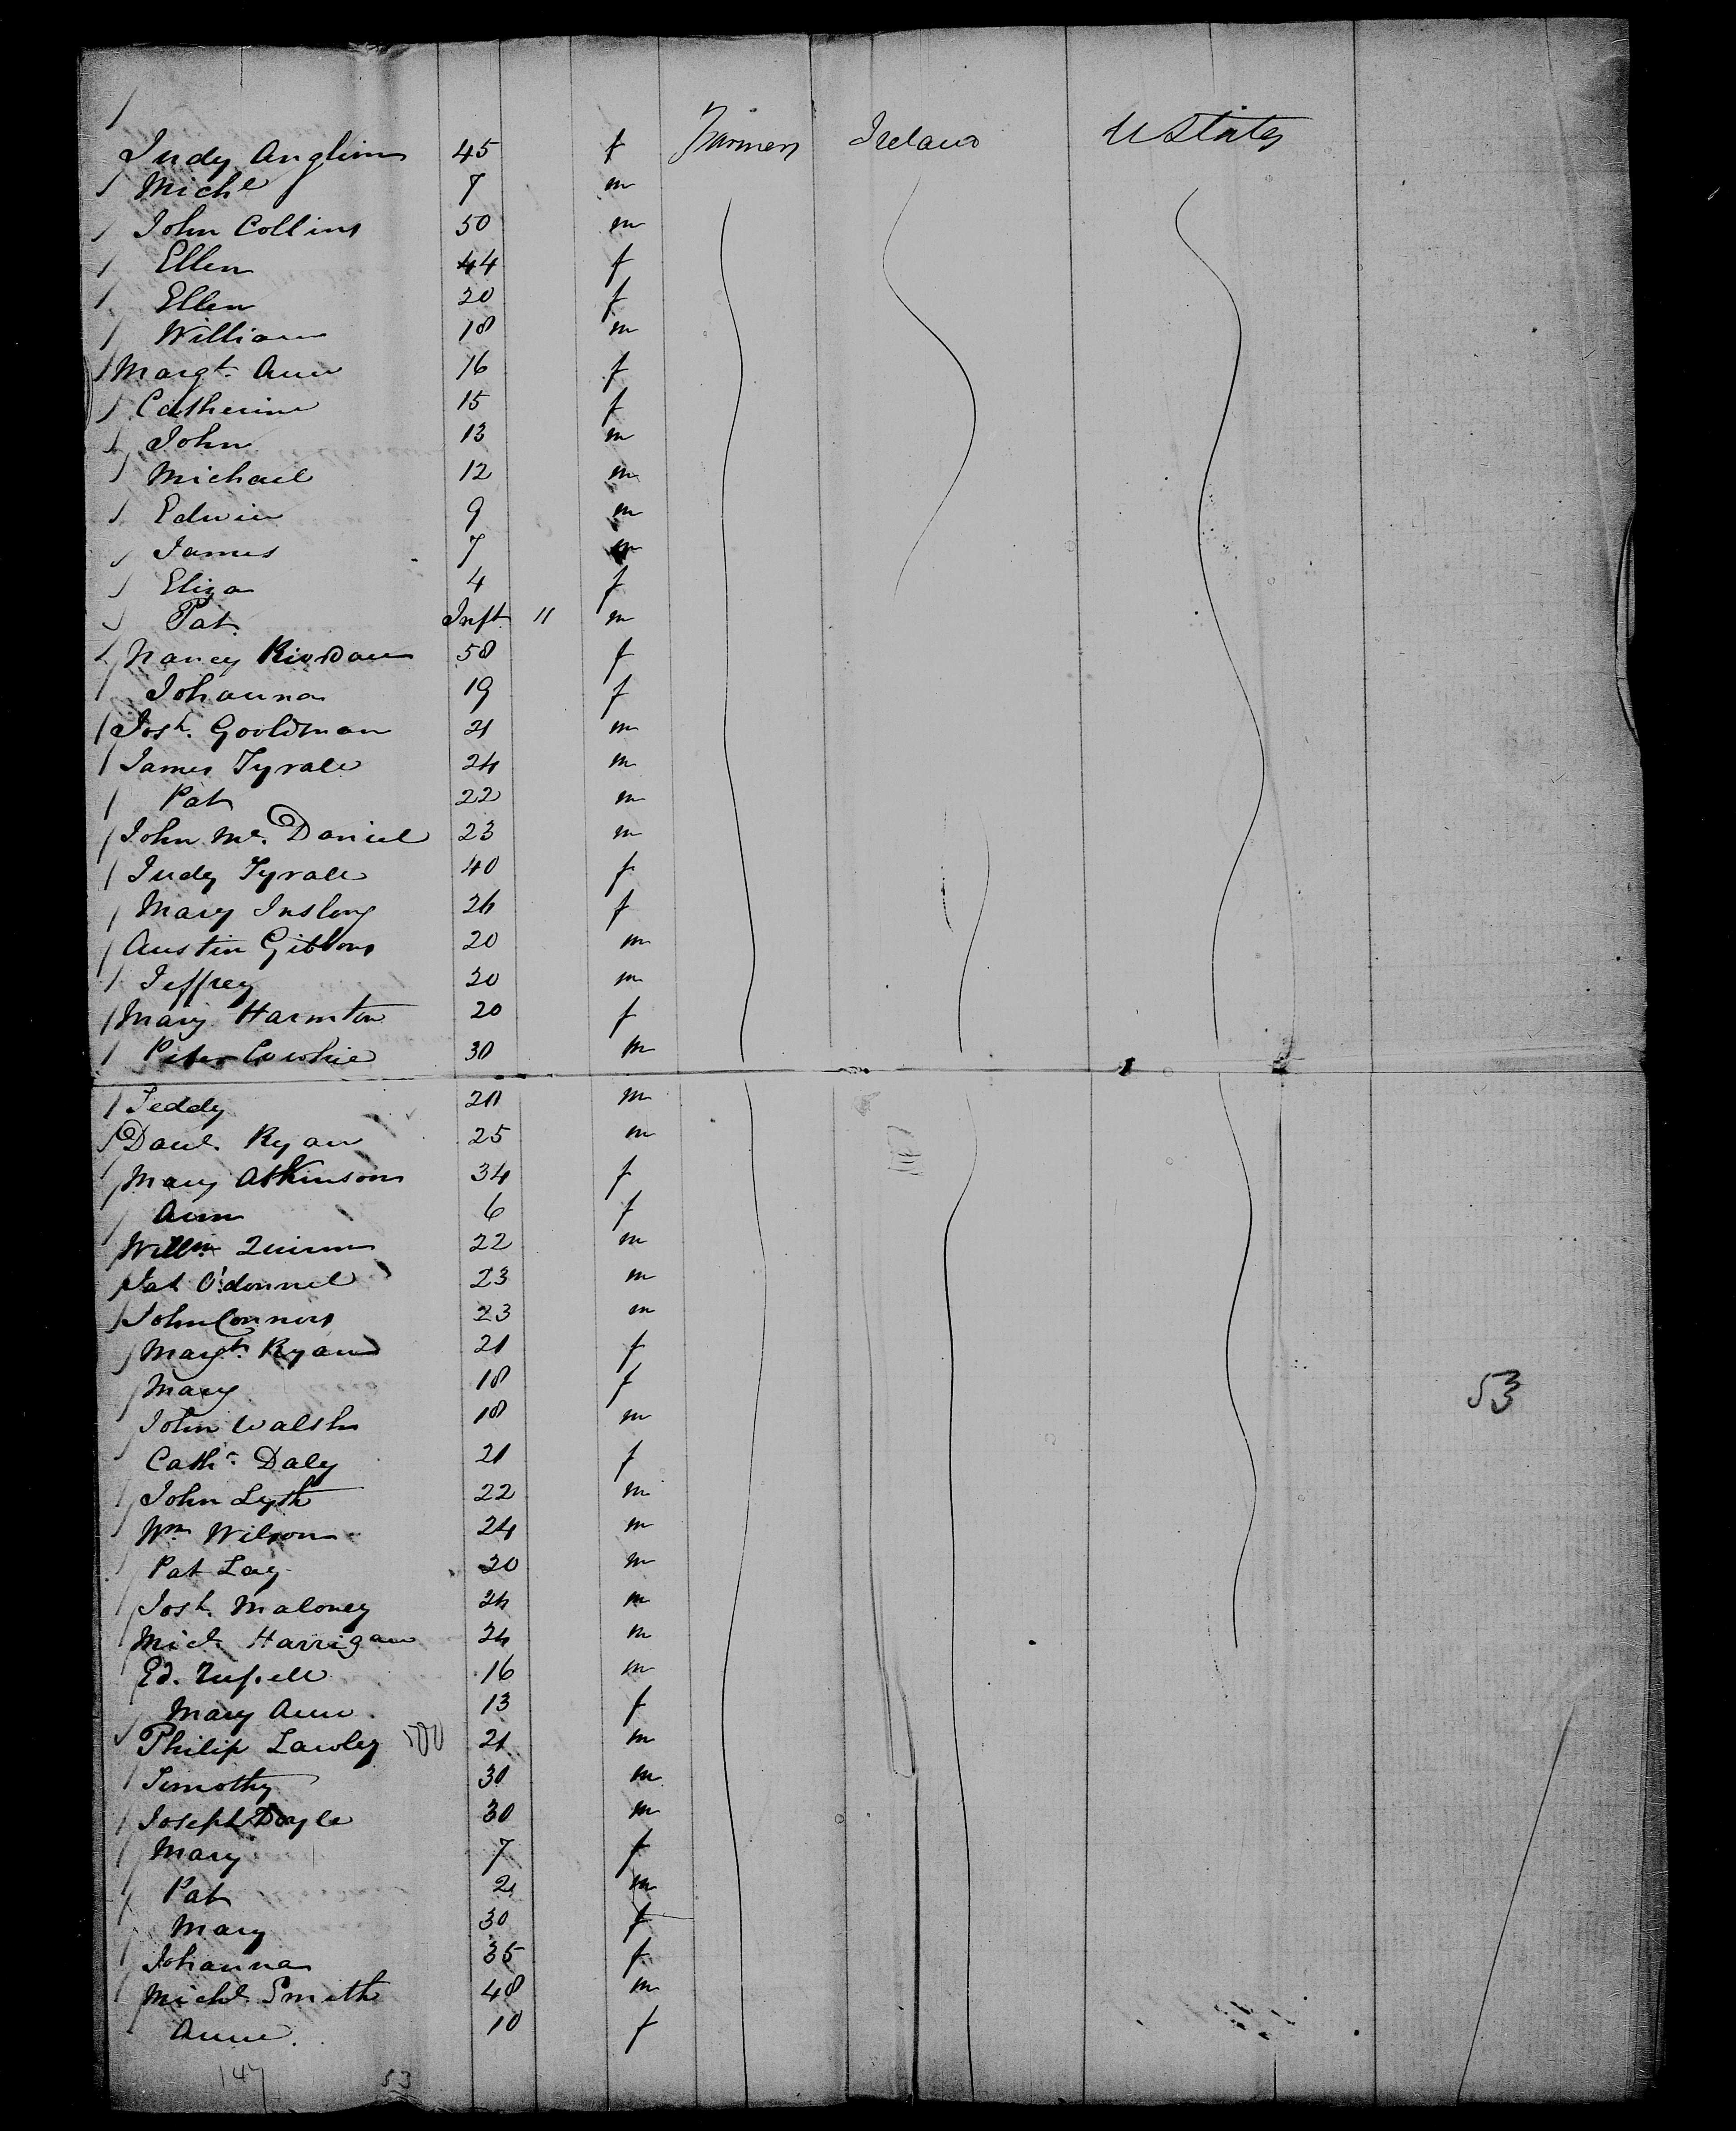 Judy Anglim 45 f Farmers Ireland U States
Michl 7 m
John Collins 50 m
Ellen 44 f
Ellen 20 f
William 18 m
Margt. Ann 16 f
Catherine 15 f
John 13 m
Michael 12 m
Edwin 9 m
James 7 m
Eliza 4 f
Pat. Inft. " m
Nancy Riordan 58 f
Johanna 19 f
Josh. Gooldman 21 m
James Tyrale 24 m
Pat 22 m
John Mc. Daniel 23 m
Judy Tyrale 40 f
Mary 26 f
Austin Gibbons 20 m
Jeffrey 20 m
Mary Harmton 20 f
Peter 30 m
Teddy 20 m
Danl. Ryan 25 m
Mary Atkinson 34 f
Ann 6 f
Willm Quinn 22 m
Pat O'donnel 23 m
John Connors 23 m
Margt. Ryan 21 f
Mary 18 f
53
John Walsh 18 m
Cathe. Daly 21 f
John Lyth 22 m
Wm Wilson 24 m
Pat Lay 20 m
Josh. Maloney 24 m
Mich. Harrigan 24 m
Ed. 16 m
Mary Ann 13 f
Philip Lawley 21 m
Timothy 30 m
Joseph Doyle 30 m
Mary 7 f
Pat 2 m
Mary 30 f
Johanna 35 f
Michl. Smith 48 m
Anne. 10 f
147 53